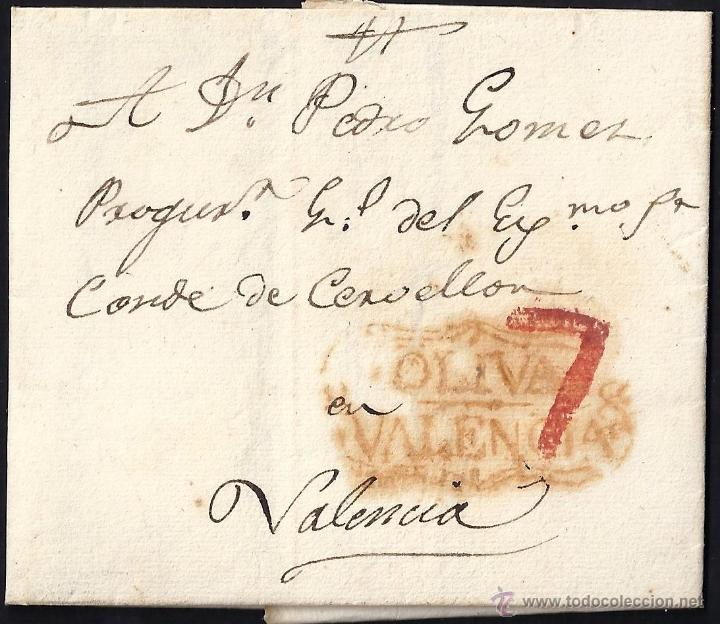 A Dn. Pedro Gomez
Procur.r G.l del Ex.mo Sr
Conde de Cervellon
7
OLIVA
en
VALENCIA
Valencia
www.todocoleccion.net